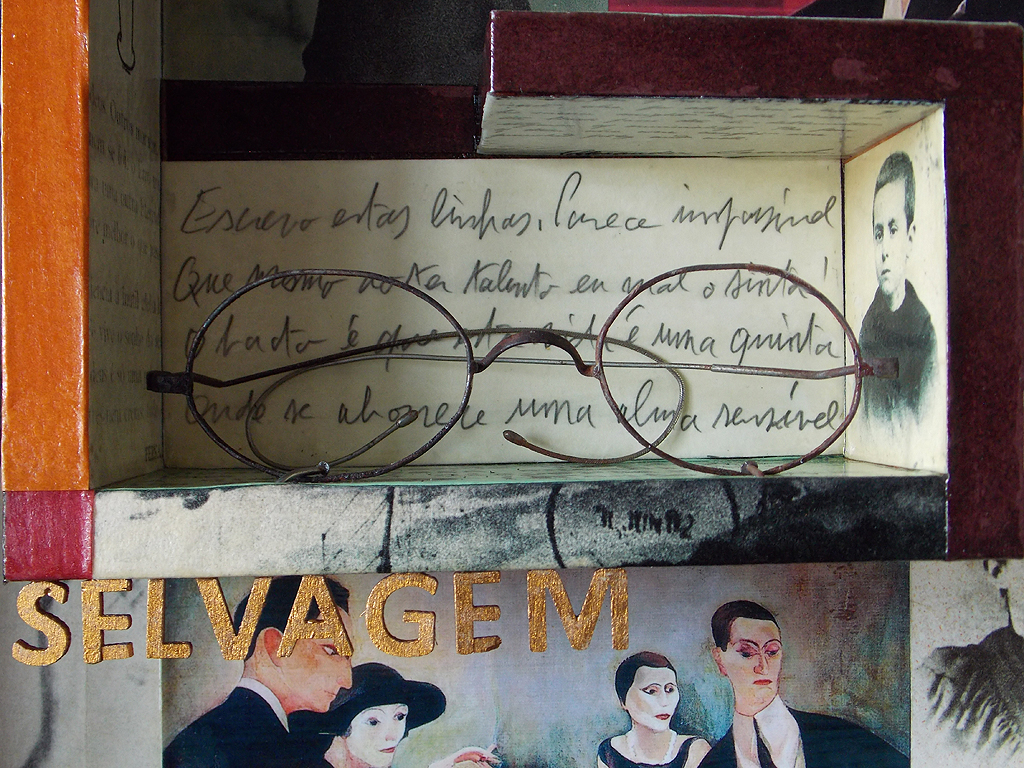 Escrevo estas linhas. Parece impossível
Que mesmo ao ter talento eu mal o sinta!
O facto é que esta vida é uma quinta
Onde se aborrece uma alma sensível
SELVAGEM